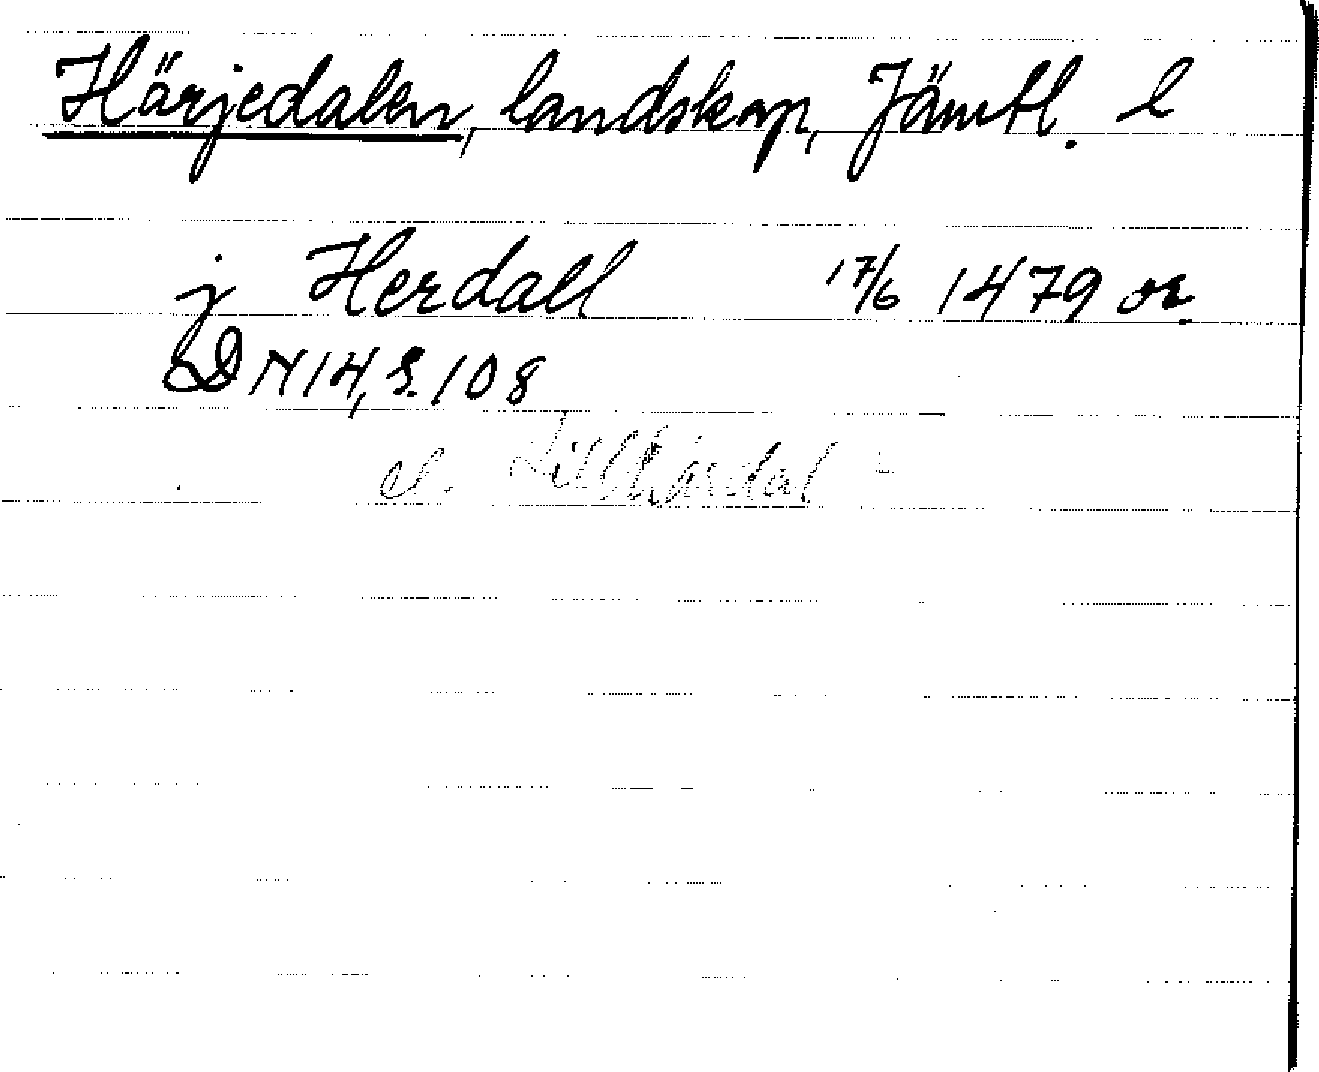 Härjedalen, landskap, Jämtl. l
j Herdall 17/6 1479 or.
DN 14, s. 108
el. Lillhärdal -